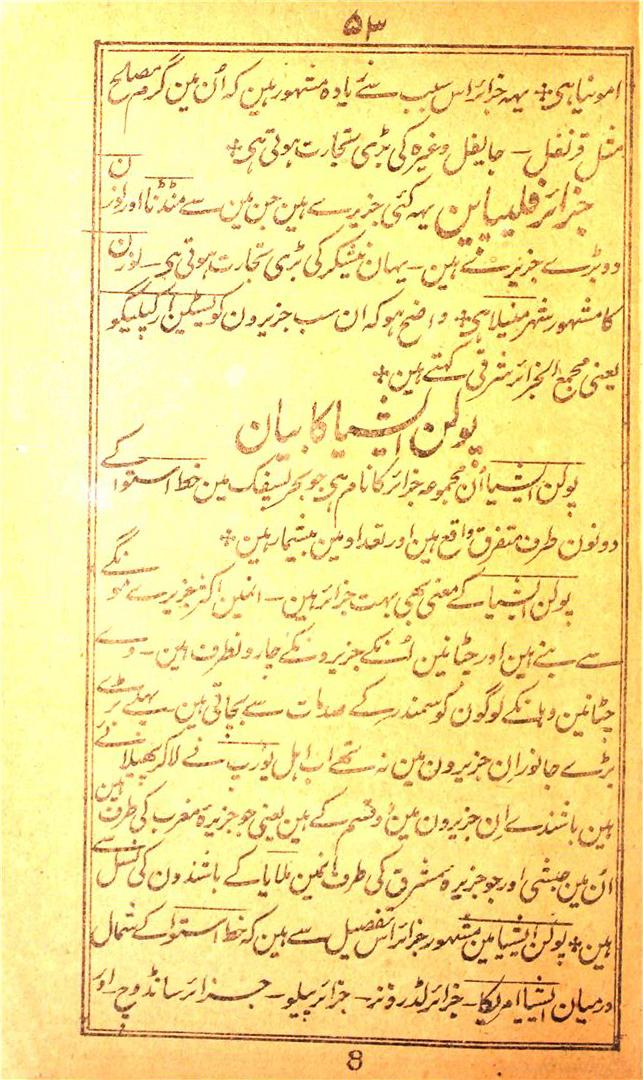 ۵۳
امونیا ہی + یہہ جزائر اس سبب سے زیادہ مشہور ہین کہ اُن مین گرم مصالح
مثل قرنفل - جایفل وغیرہ کی بڑی تجارت ہوتی ہی +
جزائر فلیپاین یہہ کئی جزیرے ہین جن مین سے منڈنا اور لوزن
دو بڑے جزیرے ہین - یہان نیشکر کی بڑی تجارت ہوتی ہی - لوزن
کا مشہور شہر منیلا ہی + واضح ہو کہ ان سب جزیرون کو ایسٹین آرکپلیگو
یعنی مجمع الجزائر شرقی کہتے ہین +
پولن ایشیا کا بیان
پولن ایشیا اُن مجموعہ جزائر کا نام ہی جو بحر پسیفک مین خط استوا کے
دونون طرف متفرق واقع ہین اور تعداد مین بیشمار ہین +
پولن ایشیا کے معنی بھی بہت جزائر ہین - انمین اکثر جزیرے مونگے
سے بنے ہین اور چٹانین انکے جزیرونکے چارونطرف ہین - وے
چٹانین وہانکے لوگون کو سمندر کے صدمات سے بچاتی ہین پہلے بڑے
بڑے جانور اِن جزیرون مین نہ تھے اب اہل یورپ نے لاکر پھیلائے
ہین باشندے اِن جزیرون مین دو قسم کے ہین یعنی جو جزیرہ مغرب کی طرف ہین
اُن مین حبشی اور جو جزیرہ مشرق کی طرف انمین ملایا کے باشندون کی نسل سے
ہین + پولن ایشیا مین مشہور جزائر اس تفصیل سے ہین کہ خط استوا کے شمال
درمیان ایشیا امریکا - جزائر لڈرونز - جزائر پیلو - جزائر سانڈوچ - اور
8